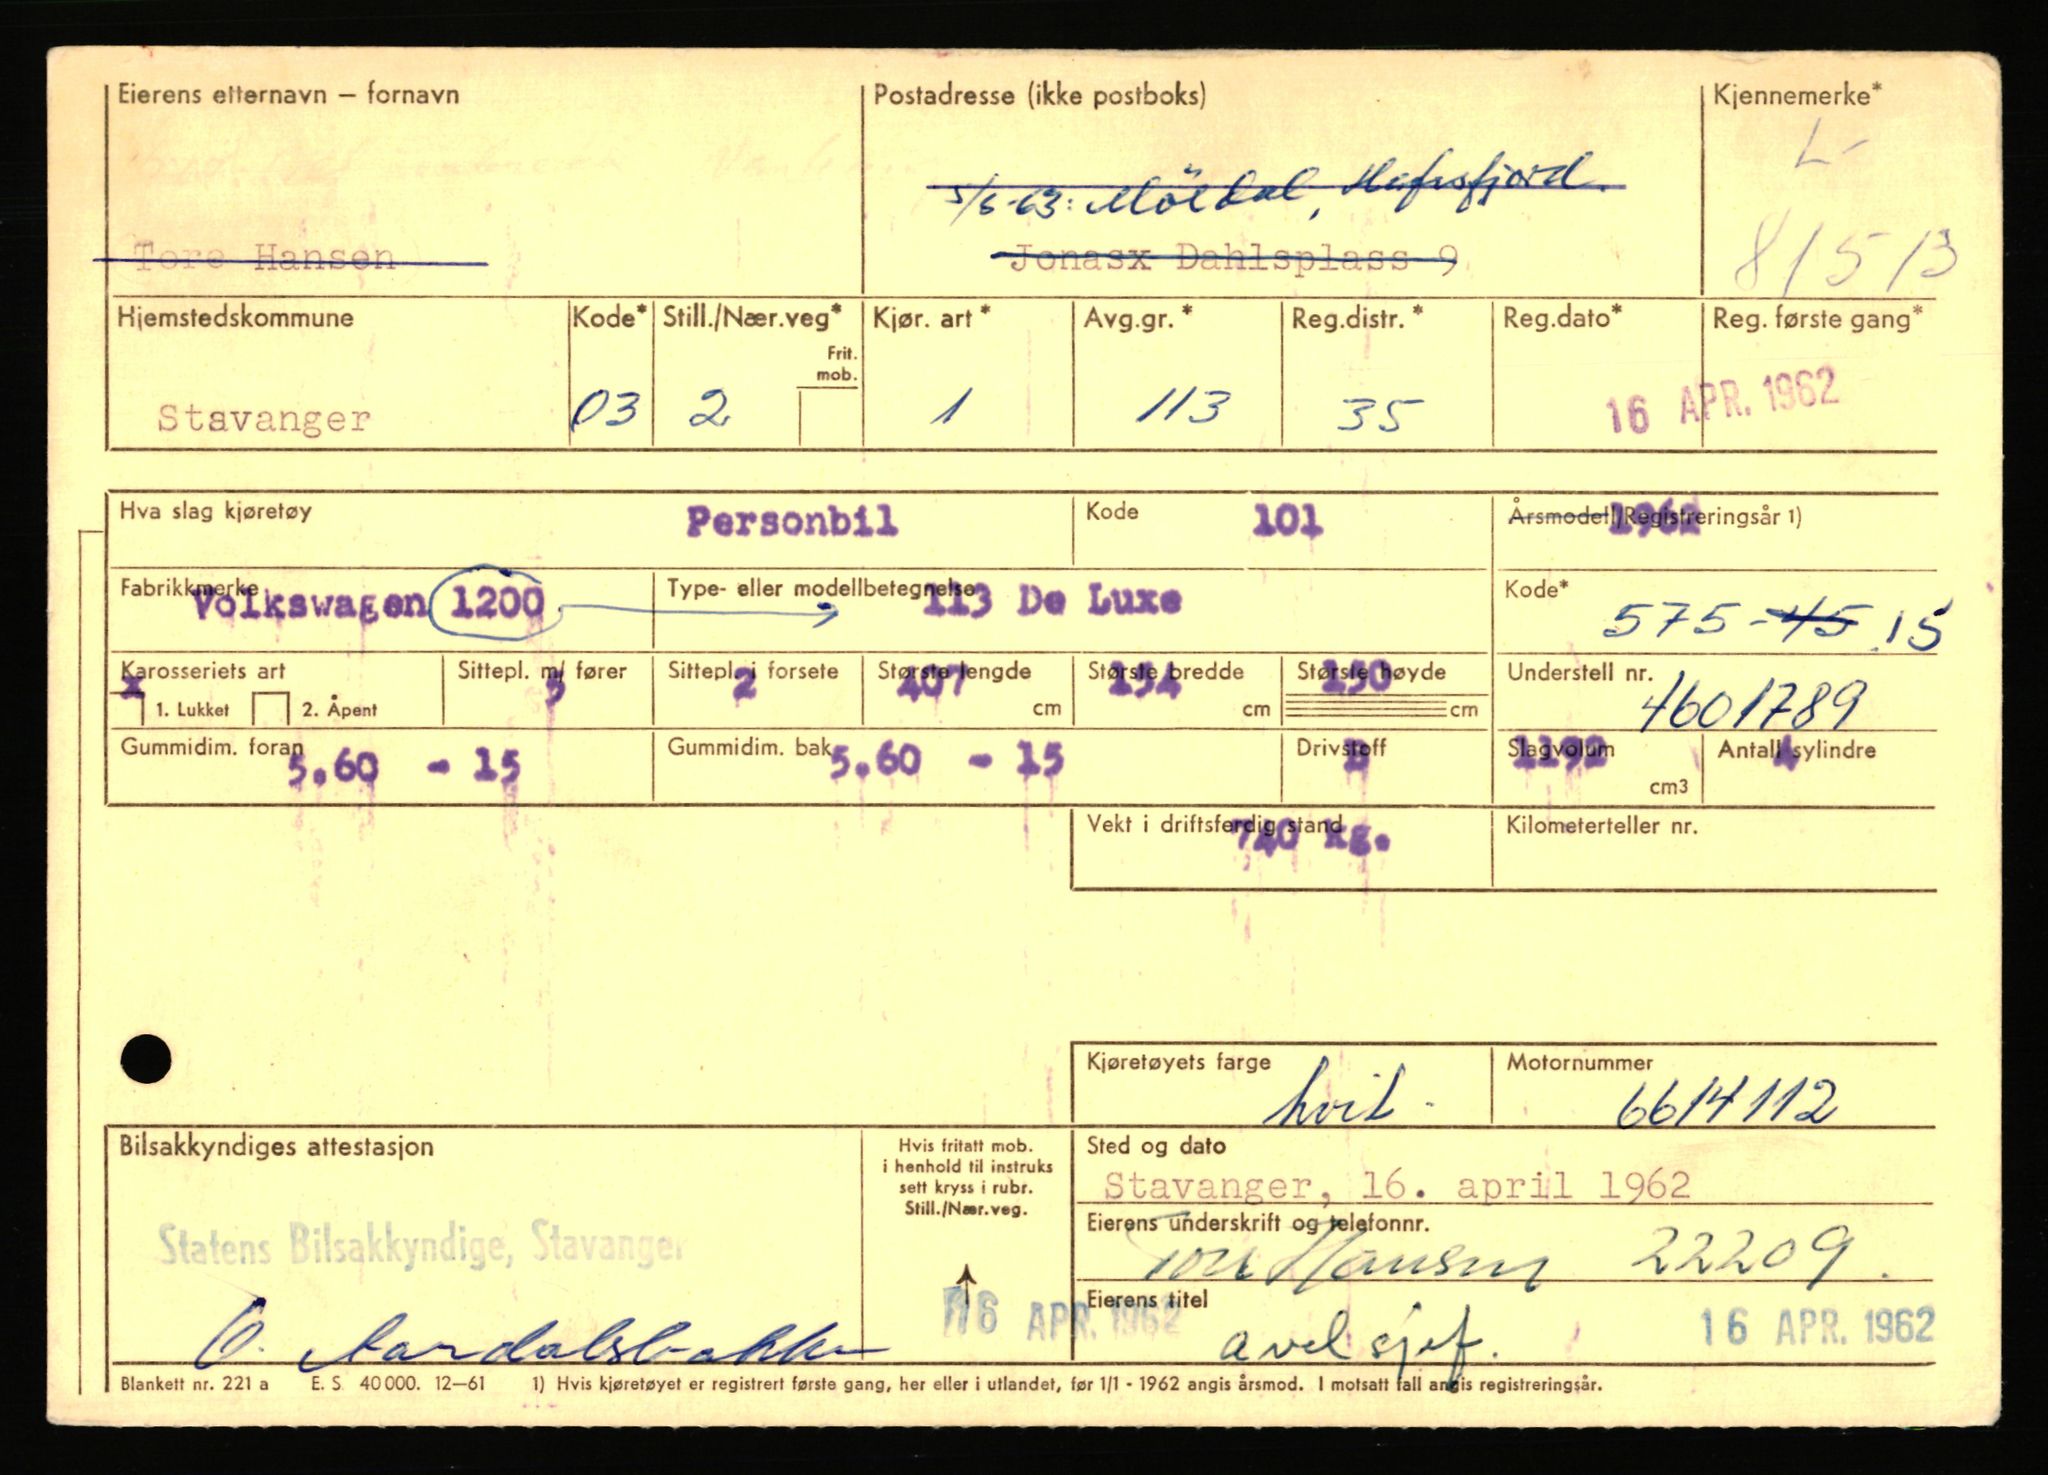 Eierens etternavn – fornavn
Postadresse (ikke postboks)
Kjennemerke*
L-
5/6-63: Möldal, Hafrsfjord.
Tore Hansen
Jonasx Dahlsplass 9
81513
Hjemstedskommune
Kode*
Still./Nær.veg*
Frit. mob.
Kjør. art *
Avg.gr. *
Reg.distr. *
Reg.dato*
Reg. første gang*
Stavanger
03
2
1
113
35
16 APR. 1962
Hva slag kjøretøy
Personbil
Kode
101
Årsmodell/Registreringsår 1)
1962
Fabrikkmerke
Volkswagen 1200
Type- eller modellbetegnelse
113 De Luxe
Kode*
575-45.15
Karosseriets art
x
1. Lukket
2. Åpent
Sittepl. m/ fører
5
Sittepl. i forsete
2
Største lengde
407
cm
Største bredde
154
cm
Største høyde
150
cm
Understell nr.
4601789
Gummidim. foran
5.60 - 15
Gummidim. bak
5.60 - 15
Drivstoff
B
Slagvolum
1192
cm3
Antall sylindre
4
Vekt i driftsferdig stand
740 kg.
Kilometerteller nr.
Kjøretøyets farge
hvit.
Motornummer
6614112
Bilsakkyndiges attestasjon
Hvis fritatt mob.
i henhold til instruks
sett kryss i rubr.
Still./Nær.veg.
Sted og dato
Stavanger, 16. april 1962
Eierens underskrift og telefonnr.
Tore Hansen 22209.
Statens Bilsakkyndige, Stavanger
16 APR. 1962
Eierens titel
avd sjef.
16 APR. 1962
O. Aardalsbakke
Blankett nr. 221 a E. S. 40 000. 12–61 1) Hvis kjøretøyet er registrert første gang, her eller i utlandet, før 1/1 - 1962 angis årsmod. I motsatt fall angis registreringsår.